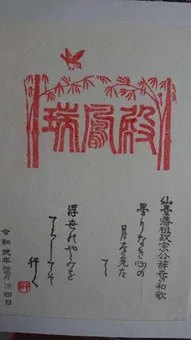 瑞鳳殿
仙臺藩祖政宗公辞世の和歌
曇りなき心の
月を先た
て
浮世のやみを
てらしてそ
行く
令和弐年
四日